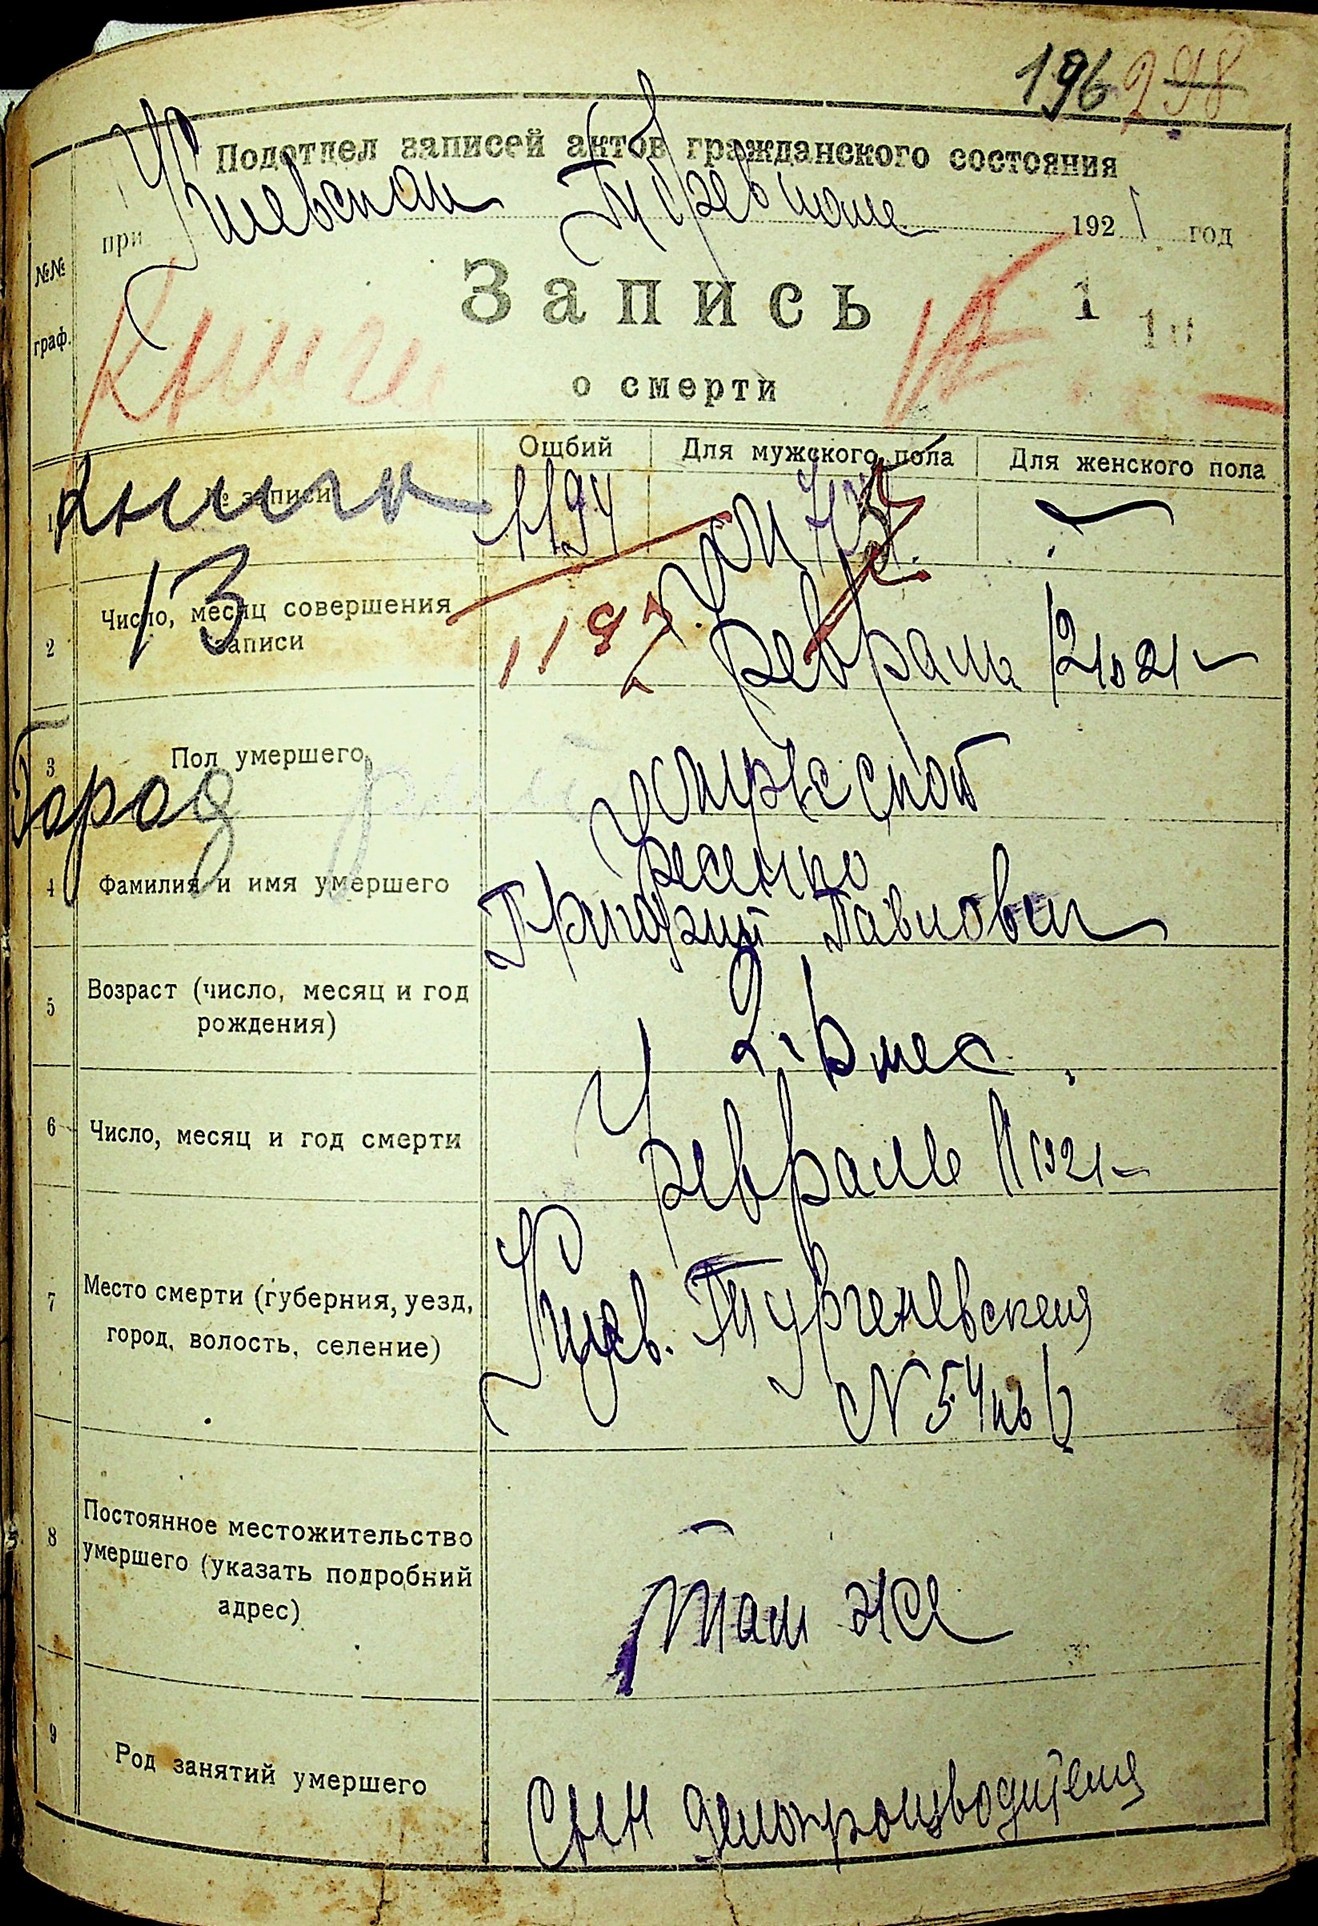 196 298
Подотдел записей актов гражданского состояния
при Киевском Губревкоме 1921 год
№№ граф.
Запись
о смерти
Книга
1
Ощбий Для мужского пола Для женского пола
1 № записи 1194
Книга
1197
13
2 Число, месяц совершения записи Февраля 12 1921
3 Пол умершего Мужеской
Город
4 Фамилия и имя умершего
Григорий Павлович
5 Возраст (число, месяц и год рождения) 2 г. 6 мес.
6 Число, месяц и год смерти Февраля 11 1921
7 Место смерти (губерния, уезд, город, волость, селение) Киев. Тургеневская
N 54 кв 12
8 Постоянное местожительство умершего (указать подробний адрес) там же
9 Род занятий умершего Сын делопроизводителя